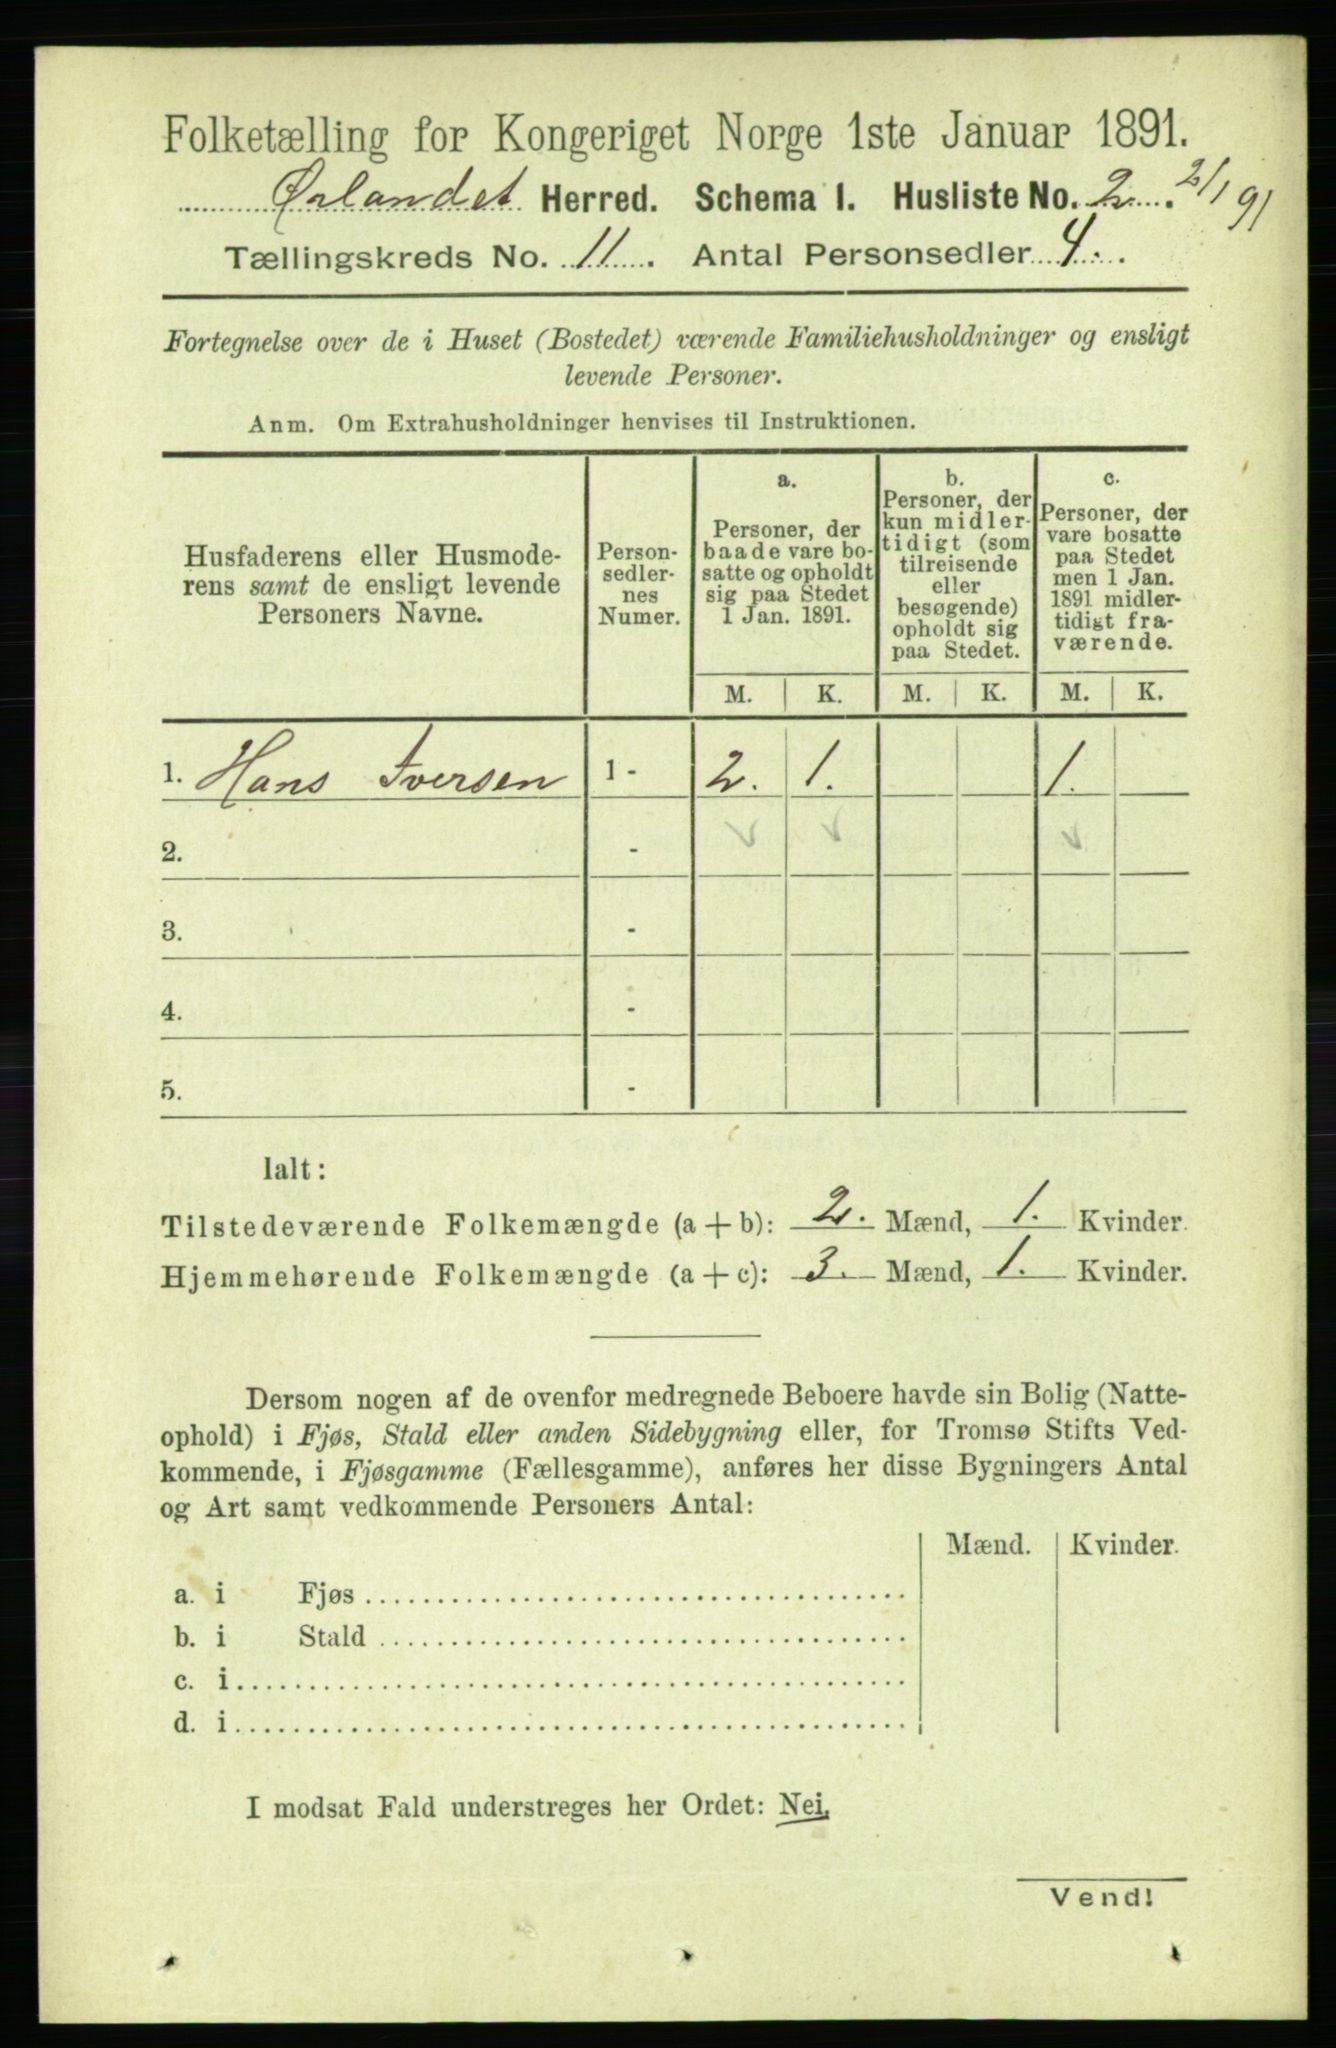 Folketælling for Kongeriget Norge 1ste Januar 1891.
Ørlandet Herred. Schema 1. Husliste No. 2. 2/1 91
Tællingskreds No. 11. Antal Personsedler 4.
Fortegnelse over de i Huset (Bostedet) værende Familiehusholdninger og ensligt
levende Personer.
Anm. Om Extrahusholdninger henvises til Instruktionen.
Husfaderens eller Husmode-
rens samt de ensligt levende
Personers Navne.
Person-
sedler-
nes
Numer.
a.
Personer, der
baade vare bo-
satte og opholdt
sig paa Stedet
1 Jan. 1891.
b.
Personer, der
kun midler-
tidigt (som
tilreisende
eller
besøgende)
opholdt sig
paa Stedet.
c.
Personer, der
vare bosatte
paa Stedet
men 1 Jan.
1891 midler-
tidigt fra-
værende.
M. K. M. K. M. K.
1. Hans Iversen 1 - 2. 1. 1.
2. -
3. -
4. -
5. -
Ialt:
Tilstedeværende Folkemængde (a + b): 2. Mænd, 1. Kvinder.
Hjemmehørende Folkemængde (a + c): 3. Mænd, 1. Kvinder.
Dersom nogen af de ovenfor medregnede Beboere havde sin Bolig (Natte-
ophold) i Fjøs, Stald eller anden Sidebygning eller, for Tromsø Stifts Ved-
kommende, i Fjøsgamme (Fællesgamme), anføres her disse Bygningers Antal
og Art samt vedkommende Personers Antal:
Mænd. Kvinder.
a. i Fjøs
b. i Stald
c. i
d. i
I modsat Fald understreges her Ordet: Nei.
Vend!